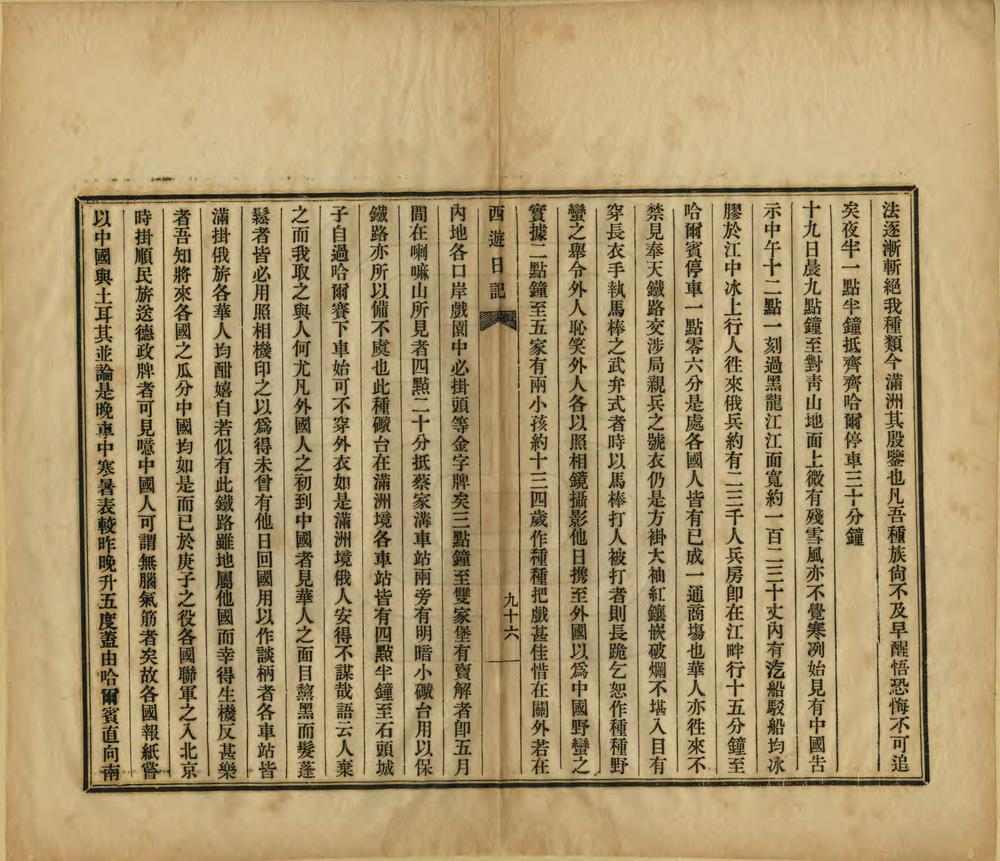 法逐漸斬絕我種類今滿洲其殷鑒也凡吾種族尙不及早醒悟恐悔不可追
矣夜半一點半鐘抵齊齊哈爾停車三十分鐘
十九日晨九點鐘至對靑山地面上微有殘雪風亦不覺寒冽始見有中國告
示中午十二點一刻過黑龍江江面寬約一百二三十丈內有汔船駁船均冰
膠於江中冰上行人徃來俄兵約有二三千人兵房卽在江畔行十五分鐘至
哈爾賓停車一點零六分是處各國人皆有已成一通商塲也華人亦徃來不
禁見奉天鐵路交涉局親兵之號衣仍是方褂大袖紅鑲嵌破爛不堪入目有
穿長衣手執馬棒之武弁式者時以馬棒打人被打者則長跪乞恕作種種野
蠻之舉令外人恥笑外人各以照相鏡攝影他日携至外國以爲中國野蠻之
實據二點鐘至五家有兩小孩約十三四歲作種種把戲甚佳惜在關外若在
西遊日記
九十六
內地各口岸戲園中必掛頭等金字牌矣三點鐘至雙家堡有賣解者卽五月
間在喇嘛山所見者四點二十分抵蔡家溝車站兩旁有明暗小礮台用以保
鐵路亦所以備不虞也此種礮台在滿洲境各車站皆有四點半鐘至石頭城
子自過哈爾賽下車始可不穿外衣如是滿洲境俄人安得不謀哉語云人棄
之而我取之與人何尤凡外國人之初到中國者見華人之面目熬黑而髮蓬
鬆者皆必用照相機印之以爲得未曾有他日回國用以作談柄者各車站皆
滿掛俄旂各華人均酣嬉自若似有此鐵路雖地屬他國而幸得生機反甚樂
者吾知將來各國之瓜分中國均如是而已於庚子之役各國聯軍之入北京
時掛順民旂送德政牌者可見噫中國人可謂無腦氣筋者矣故各國報紙嘗
以中國與土耳其並論是晚車中寒暑表較昨晚升五度蓋由哈爾賓直向南